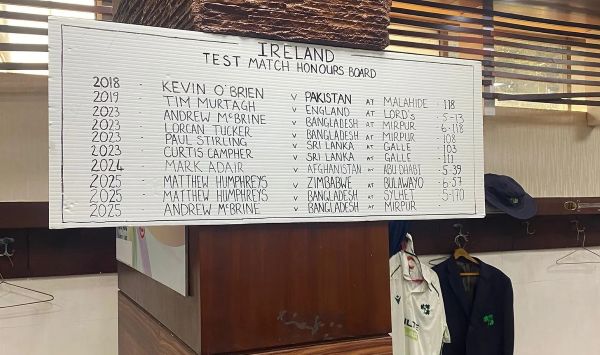 IRELAND
TEST MATCH HONOURS BOARD
2018 - KEVIN O'BRIEN V PAKISTAN AT MALAHIDE · 118
2019 - TIM MURTAGH V ENGLAND AT LORD'S · 5-13
2023 - ANDREW McBRINE V BANGLADESH AT MIRPUR · 6-118
2023 - LORCAN TUCKER V BANGLADESH AT MIRPUR · 108
2023 - PAUL STIRLING V SRI LANKA AT GALLE · 103
2023 - CURTIS CAMPHER V SRI LANKA AT GALLE · 111
2024 - MARK ADAIR V AFGHANISTAN AT ABU DHABI · 5-39
2025 - MATTHEW HUMPHREYS V ZIMBABWE AT BULAWAYO · 6-57
2025 - MATTHEW HUMPHREYS V BANGLADESH AT SYLHET · 5-170
2025 - ANDREW McBRINE V BANGLADESH AT MIRPUR